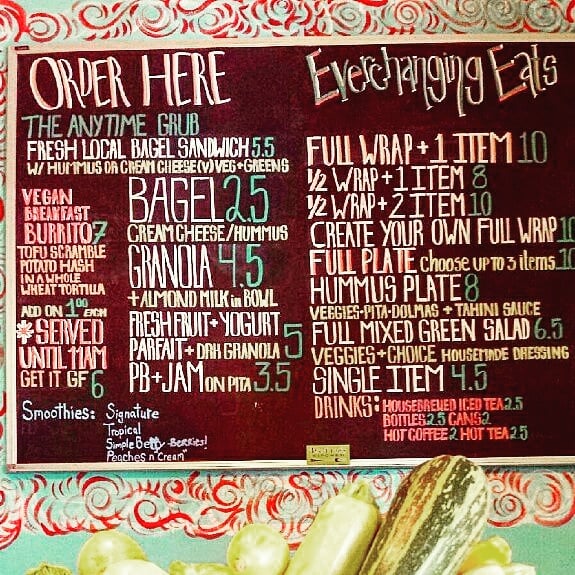 ORDER HERE
THE ANYTIME GRUB
FRESH LOCAL BAGEL SANDWICH 5.5
W/ HUMMUS OR CREAM CHEESE (V) VEG + GREENS
VEGAN
BREAKFAST
BURRITO 7
TOFU SCRAMBLE
POTATO HASH
IN A WHOLE
WHEAT TORTILLA
ADD ON 1.00 EACH
*SERVED
UNTIL 11AM
GET IT GF 6
BAGEL 2.5
CREAM CHEESE/HUMMUS
GRANOLA 4.5
+ ALMOND MILK in BOWL
FRESH FRUIT + YOGURT
PARFAIT + DRK GRANOLA 5
PB + JAM ON PITA 3.5
Smoothies: Signature
Tropical
Simple Betty - Berries!
Peaches n' Cream"
Everchanging Eats
FULL WRAP + 1 ITEM 10
1/2 WRAP + 1 ITEM 8
1/2 WRAP + 2 ITEM 10
CREATE YOUR OWN FULL WRAP 10
FULL PLATE Choose up to 3 items 10
HUMMUS PLATE 8
VEGGIES-PITA-DOLMAS + TAHINI SAUCE
FULL MIXED GREEN SALAD 6.5
VEGGIES + CHOICE HOUSEMADE DRESSING
SINGLE ITEM 4.5
DRINKS: HOUSEBREWED ICED TEA 2.5
BOTTLES 2.5 CANS 2
HOT COFFEE 2 HOT TEA 2.5